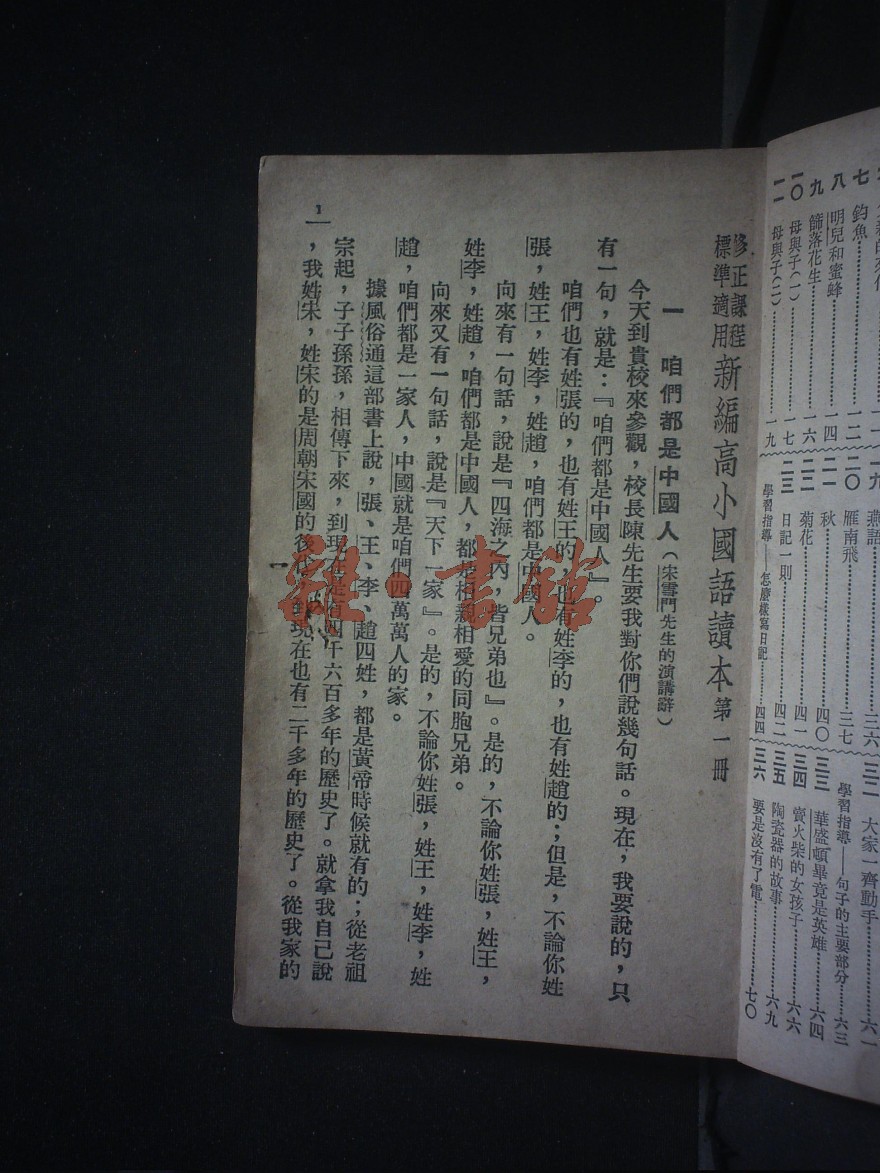 七 釣魚……一二
八 明兒和蜜蜂……一四
九 篩落花生……一六
一〇 母與子(一)……一七
一一 母與子(二)……一九
一九 燕語……三六
二〇 雁南飛……三七
二一 秋……四〇
二二 菊花……四一
二三 日記一則……四二
學習指導——怎麼樣寫日記……四四
三二 大家一齊動手……六一
學習指導——句子的主要部分……六三
三三 華盛頓畢竟是英雄……六四
三四 賣火柴的女孩子……六六
三五 陶瓷器的故事……六九
三六 要是沒有了電……七〇
修正課程
標準適用
新編高小國語讀本 第一冊
一 咱們都是中國人(宋雪門先生的演講辭)
今天到貴校來參觀,校長陳先生要我對你們說幾句話。現在,我要說的,只
有一句,就是:『咱們都是中國人』。
咱們也有姓張的,也有姓王的,也有姓李的,也有姓趙的;但是,不論你姓
張,姓王,姓李,姓趙,咱們都是中國人。
向來有一句話,說是『四海之內,皆兄弟也』。是的,不論你姓張,姓王,
姓李,姓趙,咱們都是中國人,都是相親相愛的同胞兄弟。
向來又有一句話,說是『天下一家』。是的,不論你姓張,姓王,姓李,姓
趙,咱們都是一家人,中國就是咱們四萬萬人的家。
據風俗通這部書上說,張、王、李、趙四姓,都是黃帝時候就有的;從老祖
宗起,子子孫孫,相傳下來,到現在是有四千六百多年的歷史了。就拿我自己說
,我姓宋,姓宋的是周朝宋國的後代,到現在也有二千多年的歷史了。從我家的
1
一
書館